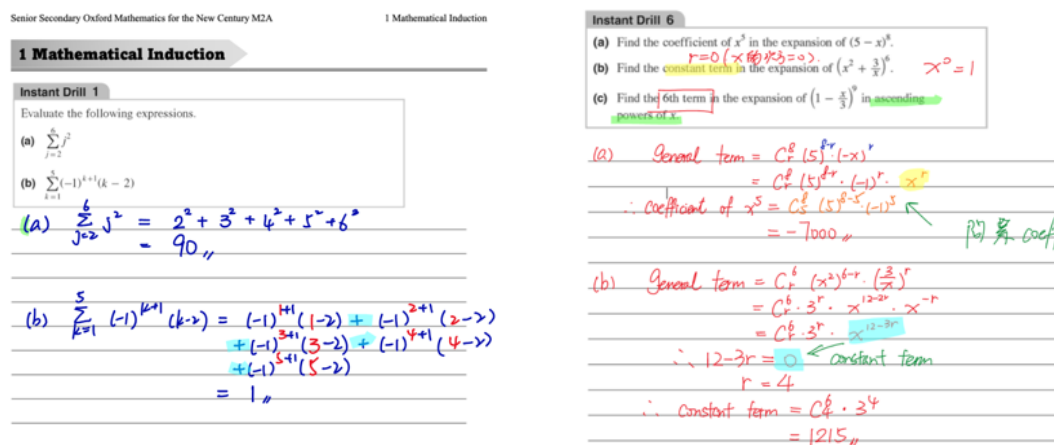 Senior Secondary Oxford Mathematics for the New Century M2A
1 Mathematical Induction
1 Mathematical Induction
Instant Drill 1
Evaluate the following expressions.
(a) \sum_{j=2}^{6} j^2
(b) \sum_{k=1}^{5} (-1)^{k+1}(k - 2)
(a) \sum_{j=2}^{6} j^2 = 2^2 + 3^2 + 4^2 + 5^2 + 6^2
= 90 //
(b) \sum_{k=1}^{5} (-1)^{k+1} (k-2) = (-1)^{1+1} (1-2) + (-1)^{2+1} (2-2)
+(-1)^{3+1} (3-2) + (-1)^{4+1} (4-2)
+(-1)^{5+1} (5-2)
= 1 //
Instant Drill 6
(a) Find the coefficient of x^5 in the expansion of (5 - x)^8.
r=0 (x 的次方=0).
(b) Find the constant term in the expansion of (x^2 + \frac{3}{x})^6.
x^0 = 1
(c) Find the 6th term in the expansion of (1 - \frac{x}{3})^9 in ascending
powers of x
(a) General term = C_r^8 (5)^{8-r} · (-x)^r
= C_r^8 (5)^{8-r} · (-1)^r · x^r
∴ coefficient of x^5 = C_5^8 (5)^{8-5} · (-1)^5
= -7000 //
問緊 coef
(b) General term = C_r^6 (x^2)^{6-r} · (\frac{3}{x})^r
= C_r^6 · 3^r · x^{12-2r} · x^{-r}
= C_r^6 · 3^r · x^{12-3r}
∴ 12-3r = 0 ← constant term
r = 4
∴ constant term = C_4^6 · 3^4
= 1215 //